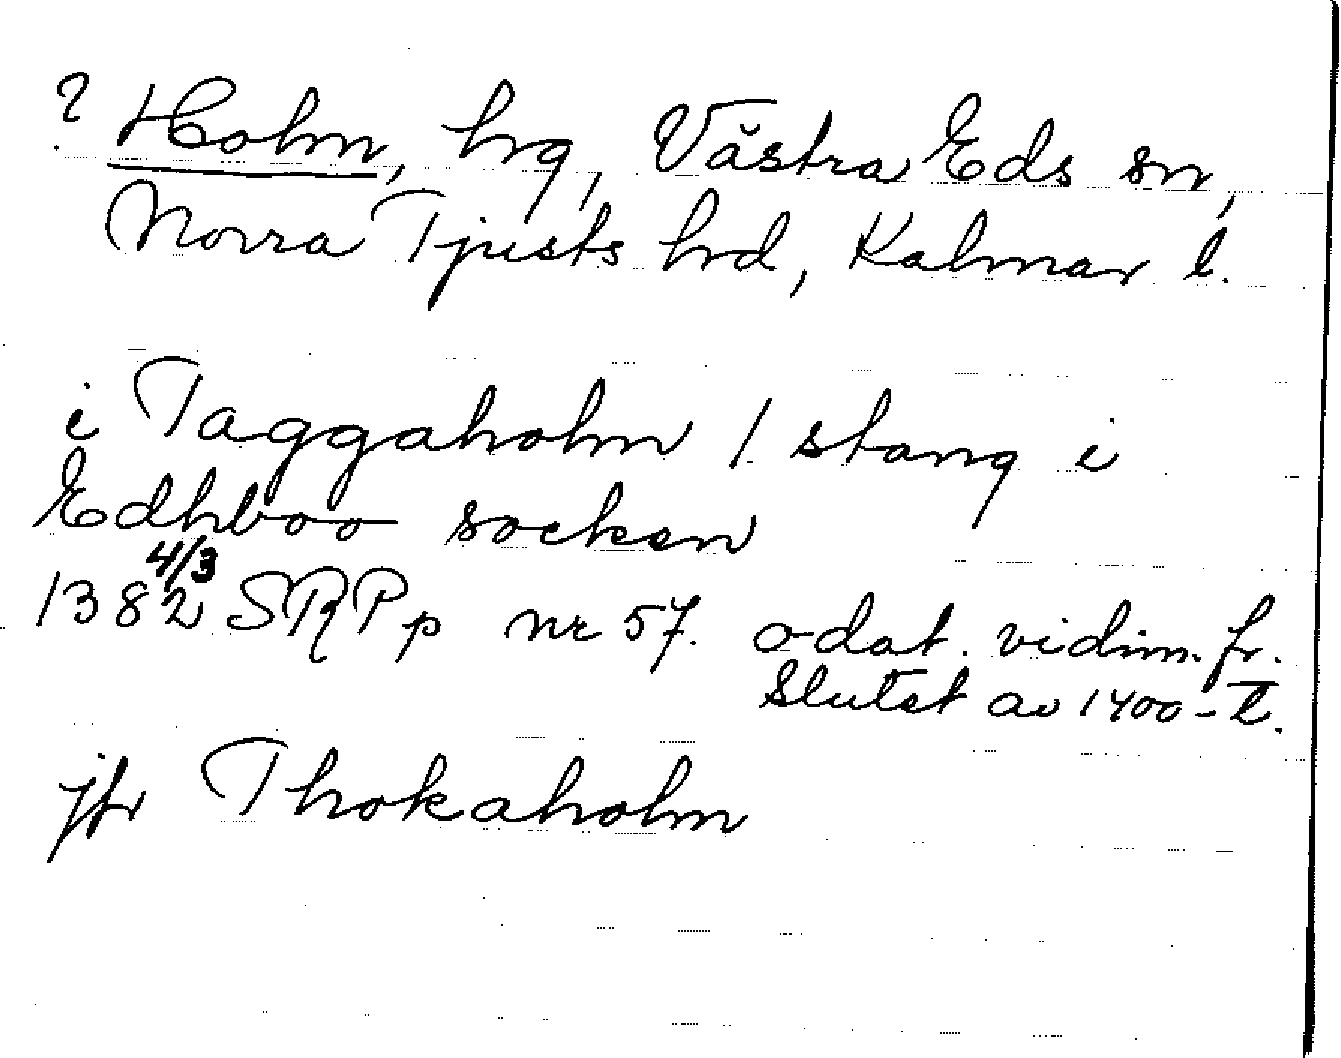 ? Holm, hrg, Västra Eds sn,
Norra Tjusts hrd, Kalmar l.
i Taggaholm 1 stang i
Edhboo socken
1382 4/3 SRPp nr 57. odat. vidim. fr.
slutet av 1400-t.
jfr Thokaholm